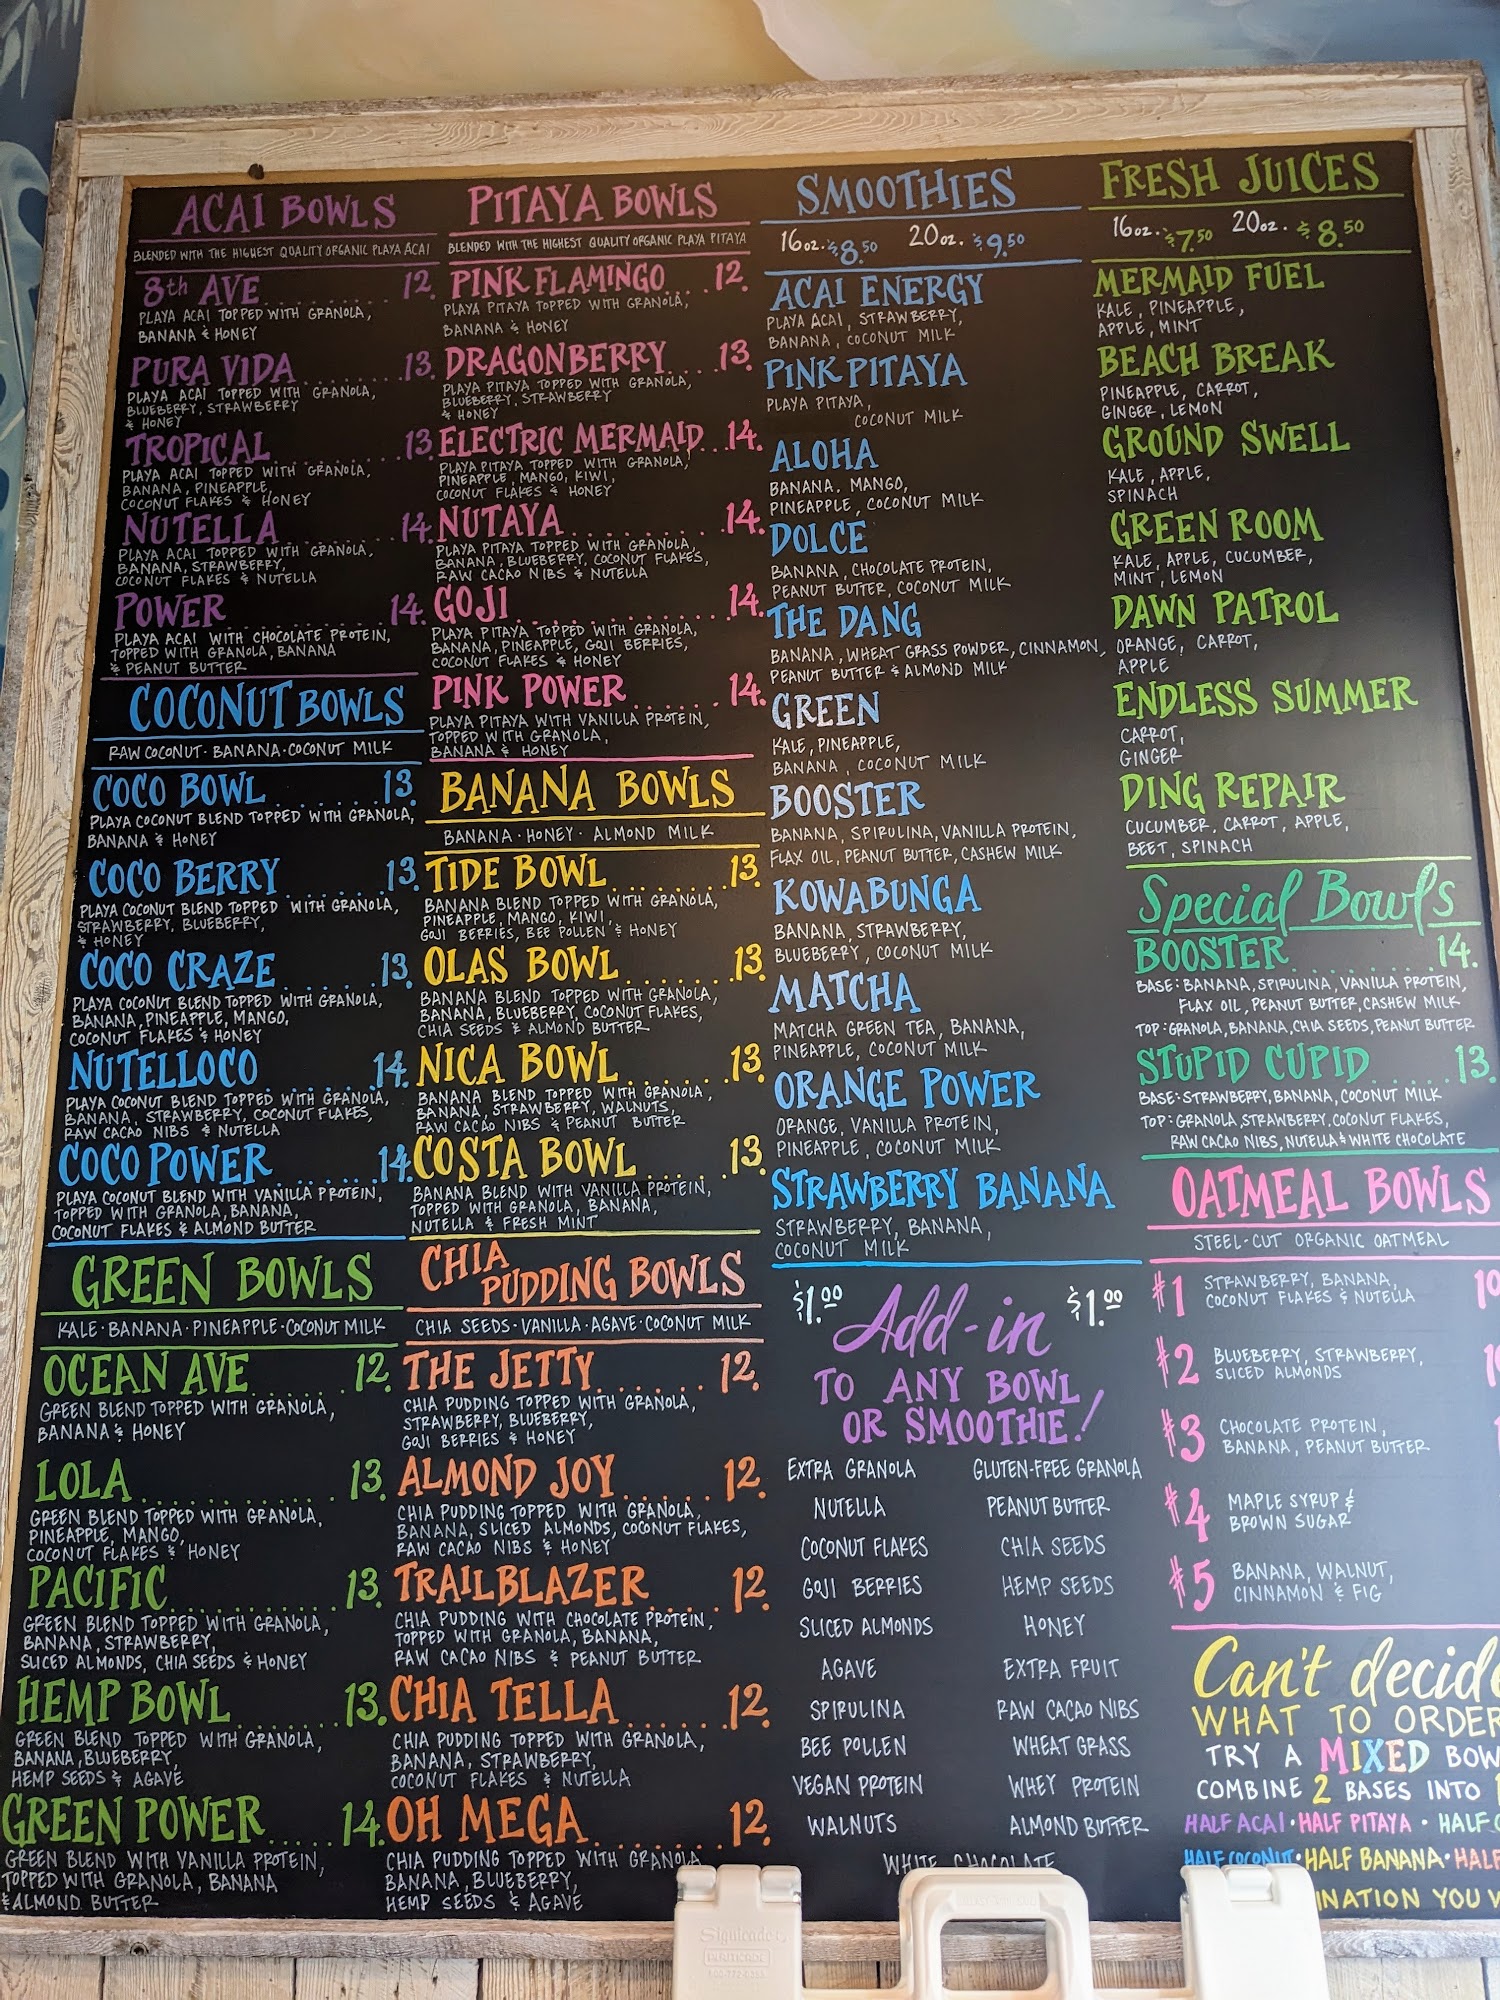 ACAI BOWLS
BLENDED WITH THE HIGHEST QUALITY ORGANIC PLAYA ACAI
8th AVE ........ 12.
PLAYA ACAI TOPPED WITH GRANOLA,
BANANA & HONEY
PURA VIDA ........ 13.
PLAYA ACAI TOPPED WITH GRANOLA,
BLUEBERRY, STRAWBERRY
& HONEY
TROPICAL ........ 13.
PLAYA ACAI TOPPED WITH GRANOLA,
BANANA, PINEAPPLE,
COCONUT FLAKES & HONEY
NUTELLA ........ 14.
PLAYA ACAI TOPPED WITH GRANOLA,
BANANA, STRAWBERRY,
COCONUT FLAKES & NUTELLA
POWER ........ 14.
PLAYA ACAI WITH CHOCOLATE PROTEIN,
TOPPED WITH GRANOLA, BANANA
& PEANUT BUTTER
COCONUT BOWLS
RAW COCONUT · BANANA · COCONUT MILK
COCO BOWL ........ 13.
PLAYA COCONUT BLEND TOPPED WITH GRANOLA,
BANANA & HONEY
COCO BERRY ........ 13.
PLAYA COCONUT BLEND TOPPED WITH GRANOLA,
STRAWBERRY, BLUEBERRY,
& HONEY
COCO CRAZE ........ 13.
PLAYA COCONUT BLEND TOPPED WITH GRANOLA,
BANANA, PINEAPPLE, MANGO,
COCONUT FLAKES & HONEY
NUTELLOCO ........ 14.
PLAYA COCONUT BLEND TOPPED WITH GRANOLA,
BANANA, STRAWBERRY, COCONUT FLAKES,
RAW CACAO NIBS & NUTELLA
COCO POWER ........ 14.
PLAYA COCONUT BLEND WITH VANILLA PROTEIN,
TOPPED WITH GRANOLA, BANANA,
COCONUT FLAKES & ALMOND BUTTER
GREEN BOWLS
KALE · BANANA · PINEAPPLE · COCONUT MILK
OCEAN AVE ........ 12.
GREEN BLEND TOPPED WITH GRANOLA,
BANANA & HONEY
LOLA ........ 13.
GREEN BLEND TOPPED WITH GRANOLA,
PINEAPPLE, MANGO,
COCONUT FLAKES & HONEY
PACIFIC ........ 13.
GREEN BLEND TOPPED WITH GRANOLA,
BANANA, STRAWBERRY,
SLICED ALMONDS, CHIA SEEDS & HONEY
HEMP BOWL ........ 13.
GREEN BLEND TOPPED WITH GRANOLA,
BANANA, BLUEBERRY,
HEMP SEEDS & AGAVE
GREEN POWER ..... 14.
GREEN BLEND WITH VANILLA PROTEIN,
TOPPED WITH GRANOLA, BANANA
& ALMOND BUTTER
PITAYA BOWLS
BLENDED WITH THE HIGHEST QUALITY ORGANIC PLAYA PITAYA
PINK FLAMINGO .... 12.
PLAYA PITAYA TOPPED WITH GRANOLA,
BANANA & HONEY
DRAGONBERRY .... 13.
PLAYA PITAYA TOPPED WITH GRANOLA,
BLUEBERRY, STRAWBERRY
& HONEY
ELECTRIC MERMAID .. 14.
PLAYA PITAYA TOPPED WITH GRANOLA,
PINEAPPLE, MANGO, KIWI,
COCONUT FLAKES & HONEY
NUTAYA ........ 14.
PLAYA PITAYA TOPPED WITH GRANOLA,
BANANA, BLUEBERRY, COCONUT FLAKES,
RAW CACAO NIBS & NUTELLA
GOJI ........ 14.
PLAYA PITAYA TOPPED WITH GRANOLA,
BANANA, PINEAPPLE, GOJI BERRIES,
COCONUT FLAKES & HONEY
PINK POWER ...... 14.
PLAYA PITAYA WITH VANILLA PROTEIN,
TOPPED WITH GRANOLA,
BANANA & HONEY
BANANA BOWLS
BANANA · HONEY · ALMOND MILK
TIDE BOWL ....... 13.
BANANA BLEND TOPPED WITH GRANOLA,
PINEAPPLE, MANGO, KIWI,
GOJI BERRIES, BEE POLLEN & HONEY
OLAS BOWL ...... 13.
BANANA BLEND TOPPED WITH GRANOLA,
BANANA, BLUEBERRY, COCONUT FLAKES,
CHIA SEEDS & ALMOND BUTTER
NICA BOWL ...... 13.
BANANA BLEND TOPPED WITH GRANOLA,
BANANA, STRAWBERRY, WALNUTS,
RAW CACAO NIBS & PEANUT BUTTER
COSTA BOWL ..... 13.
BANANA BLEND WITH VANILLA PROTEIN,
TOPPED WITH GRANOLA, BANANA,
NUTELLA & FRESH MINT
CHIA
PUDDING BOWLS
CHIA SEEDS · VANILLA · AGAVE · COCONUT MILK
THE JETTY ....... 12.
CHIA PUDDING TOPPED WITH GRANOLA,
STRAWBERRY, BLUEBERRY,
GOJI BERRIES & HONEY
ALMOND JOY ..... 12.
CHIA PUDDING TOPPED WITH GRANOLA,
BANANA, SLICED ALMONDS, COCONUT FLAKES,
RAW CACAO NIBS & HONEY
TRAILBLAZER .... 12.
CHIA PUDDING WITH CHOCOLATE PROTEIN,
TOPPED WITH GRANOLA, BANANA,
RAW CACAO NIBS & PEANUT BUTTER
CHIA TELLA ...... 12.
CHIA PUDDING TOPPED WITH GRANOLA,
BANANA, STRAWBERRY,
COCONUT FLAKES & NUTELLA
OH MEGA ....... 12.
CHIA PUDDING TOPPED WITH GRANOLA,
BANANA, BLUEBERRY,
HEMP SEEDS & AGAVE
SMOOTHIES
16oz. $8.50 20oz. $9.50
ACAI ENERGY
PLAYA ACAI, STRAWBERRY,
BANANA, COCONUT MILK
PINK PITAYA
PLAYA PITAYA,
COCONUT MILK
ALOHA
BANANA, MANGO,
PINEAPPLE, COCONUT MILK
DOLCE
BANANA, CHOCOLATE PROTEIN,
PEANUT BUTTER, COCONUT MILK
THE DANG
BANANA, WHEAT GRASS POWDER, CINNAMON,
PEANUT BUTTER & ALMOND MILK
GREEN
KALE, PINEAPPLE,
BANANA, COCONUT MILK
BOOSTER
BANANA, SPIRULINA, VANILLA PROTEIN,
FLAX OIL, PEANUT BUTTER, CASHEW MILK
KOWABUNGA
BANANA, STRAWBERRY,
BLUEBERRY, COCONUT MILK
MATCHA
MATCHA GREEN TEA, BANANA,
PINEAPPLE, COCONUT MILK
ORANGE POWER
ORANGE, VANILLA PROTEIN,
PINEAPPLE, COCONUT MILK
STRAWBERRY BANANA
STRAWBERRY, BANANA,
COCONUT MILK
$1.00 Add-in $1.00
TO ANY BOWL
OR SMOOTHIE!
EXTRA GRANOLA GLUTEN-FREE GRANOLA
NUTELLA PEANUT BUTTER
COCONUT FLAKES CHIA SEEDS
GOJI BERRIES HEMP SEEDS
SLICED ALMONDS HONEY
AGAVE EXTRA FRUIT
SPIRULINA RAW CACAO NIBS
BEE POLLEN WHEAT GRASS
VEGAN PROTEIN WHEY PROTEIN
WALNUTS ALMOND BUTTER
WHITE CHOCOLATE
FRESH JUICES
16oz. $7.50 20oz. $8.50
MERMAID FUEL
KALE, PINEAPPLE,
APPLE, MINT
BEACH BREAK
PINEAPPLE, CARROT,
GINGER, LEMON
GROUND SWELL
KALE, APPLE,
SPINACH
GREEN ROOM
KALE, APPLE, CUCUMBER,
MINT, LEMON
DAWN PATROL
ORANGE, CARROT,
APPLE
ENDLESS SUMMER
CARROT,
GINGER
DING REPAIR
CUCUMBER, CARROT, APPLE,
BEET, SPINACH
Special Bowls
BOOSTER ........ 14.
BASE: BANANA, SPIRULINA, VANILLA PROTEIN,
FLAX OIL, PEANUT BUTTER, CASHEW MILK
TOP: GRANOLA, BANANA, CHIA SEEDS, PEANUT BUTTER
STUPID CUPID ..... 13.
BASE: STRAWBERRY, BANANA, COCONUT MILK
TOP: GRANOLA, STRAWBERRY, COCONUT FLAKES,
RAW CACAO NIBS, NUTELLA & WHITE CHOCOLATE
OATMEAL BOWLS
STEEL-CUT ORGANIC OATMEAL
#1 STRAWBERRY, BANANA, 10
COCONUT FLAKES & NUTELLA
#2 BLUEBERRY, STRAWBERRY,
SLICED ALMONDS
#3 CHOCOLATE PROTEIN,
BANANA, PEANUT BUTTER
#4 MAPLE SYRUP &
BROWN SUGAR
#5 BANANA, WALNUT,
CINNAMON & FIG
Can't decide
WHAT TO ORDER
TRY A MIXED BOW
COMBINE 2 BASES INTO
HALF ACAI · HALF PITAYA · HALF
HALF COCONUT · HALF BANANA · HALF
INATION YOU
Signicade